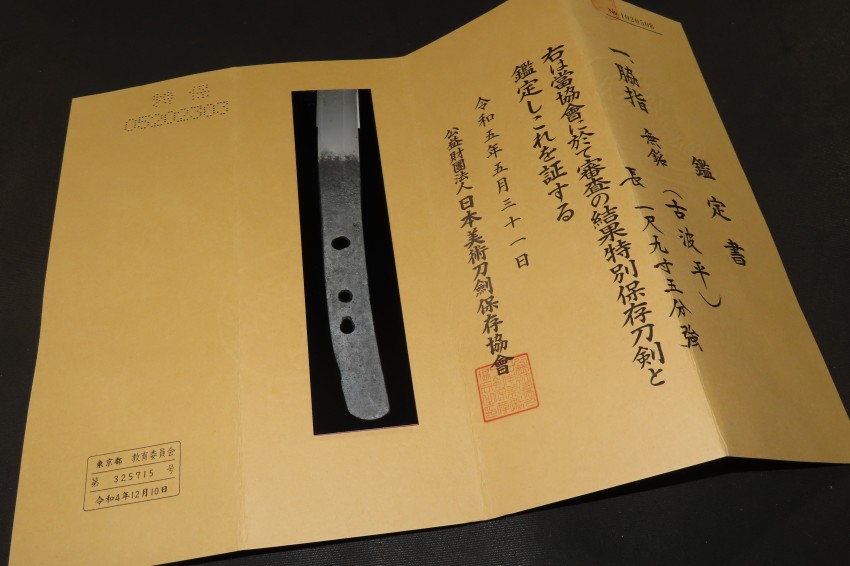 № 1020502
鑑定書
一、脇指 無銘(古波平)
長 一尺九寸五分強
右は當協會に於て審査の結果特別保存刀剣と
鑑定しこれを証する
令和五年五月三十一日
公益財團法人 日本美術刀剣保存協會
特保
05202303
東京都 教育委員会
第 325715 号
令和4年12月10日